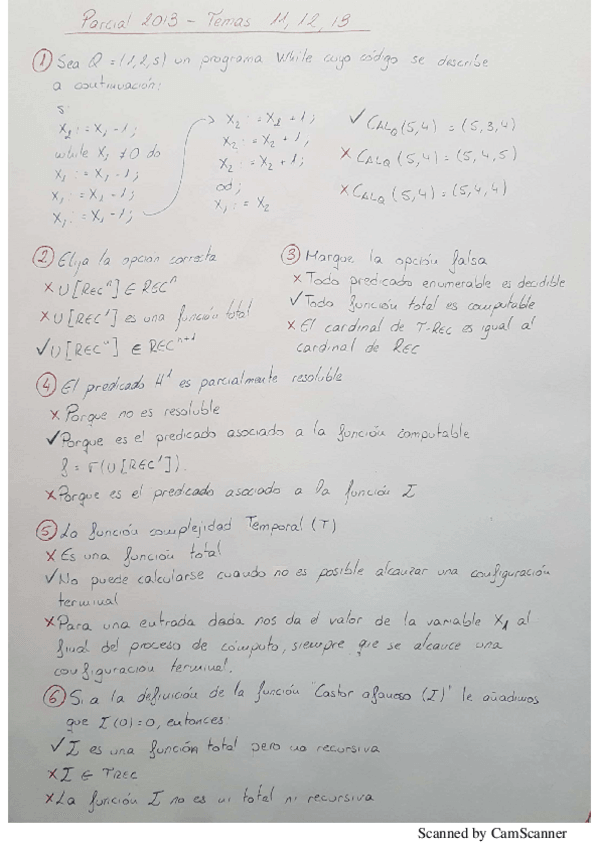 Parcial 2013 - Temas 11, 12, 13
① Sea Q = (1,2,s) un programa While cuyo código se describe
a continuación:
s:
X2 := X1 - 1;
while X1 ≠ 0 do
X1 := X1 - 1;
X1 := X1 - 1;
X1 := X1 - 1;
X2 := X2 + 1;
X2 := X2 + 1;
X2 := X2 + 1;
od;
X1 := X2
✓ CALQ(5,4) = (5,3,4)
x CALQ(5,4) = (5,4,5)
x CALQ(5,4) = (5,4,4)
② Elija la opción correcta
x U[REC^n] ∈ REC^n
x U[REC^1] es una función total
✓ U[REC^n] ∈ REC^n+1
③ Marque la opción falsa
x Todo predicado enumerable es decidible
✓ Toda función total es computable
x El cardinal de T-REC es igual al
cardinal de REC
④ El predicado H^1 es parcialmente resoluble
x Porque no es resoluble
✓ Porque es el predicado asociado a la función computable
f = σ(U[REC^1]).
x Porque es el predicado asociado a la función Σ
⑤ La función complejidad Temporal (T)
x Es una función total
✓ No puede calcularse cuando no es posible alcanzar una configuración
terminal
x Para una entrada dada nos da el valor de la variable X1 al
final del proceso de cómputo, siempre que se alcance una
configuración terminal.
⑥ Si a la definición de la función "Castor afanoso (Σ)" le añadimos
que Σ(0)=0, entonces:
✓ Σ es una función total pero no recursiva
x Σ ∈ TREC
x La función Σ no es ni total ni recursiva
Scanned by CamScanner